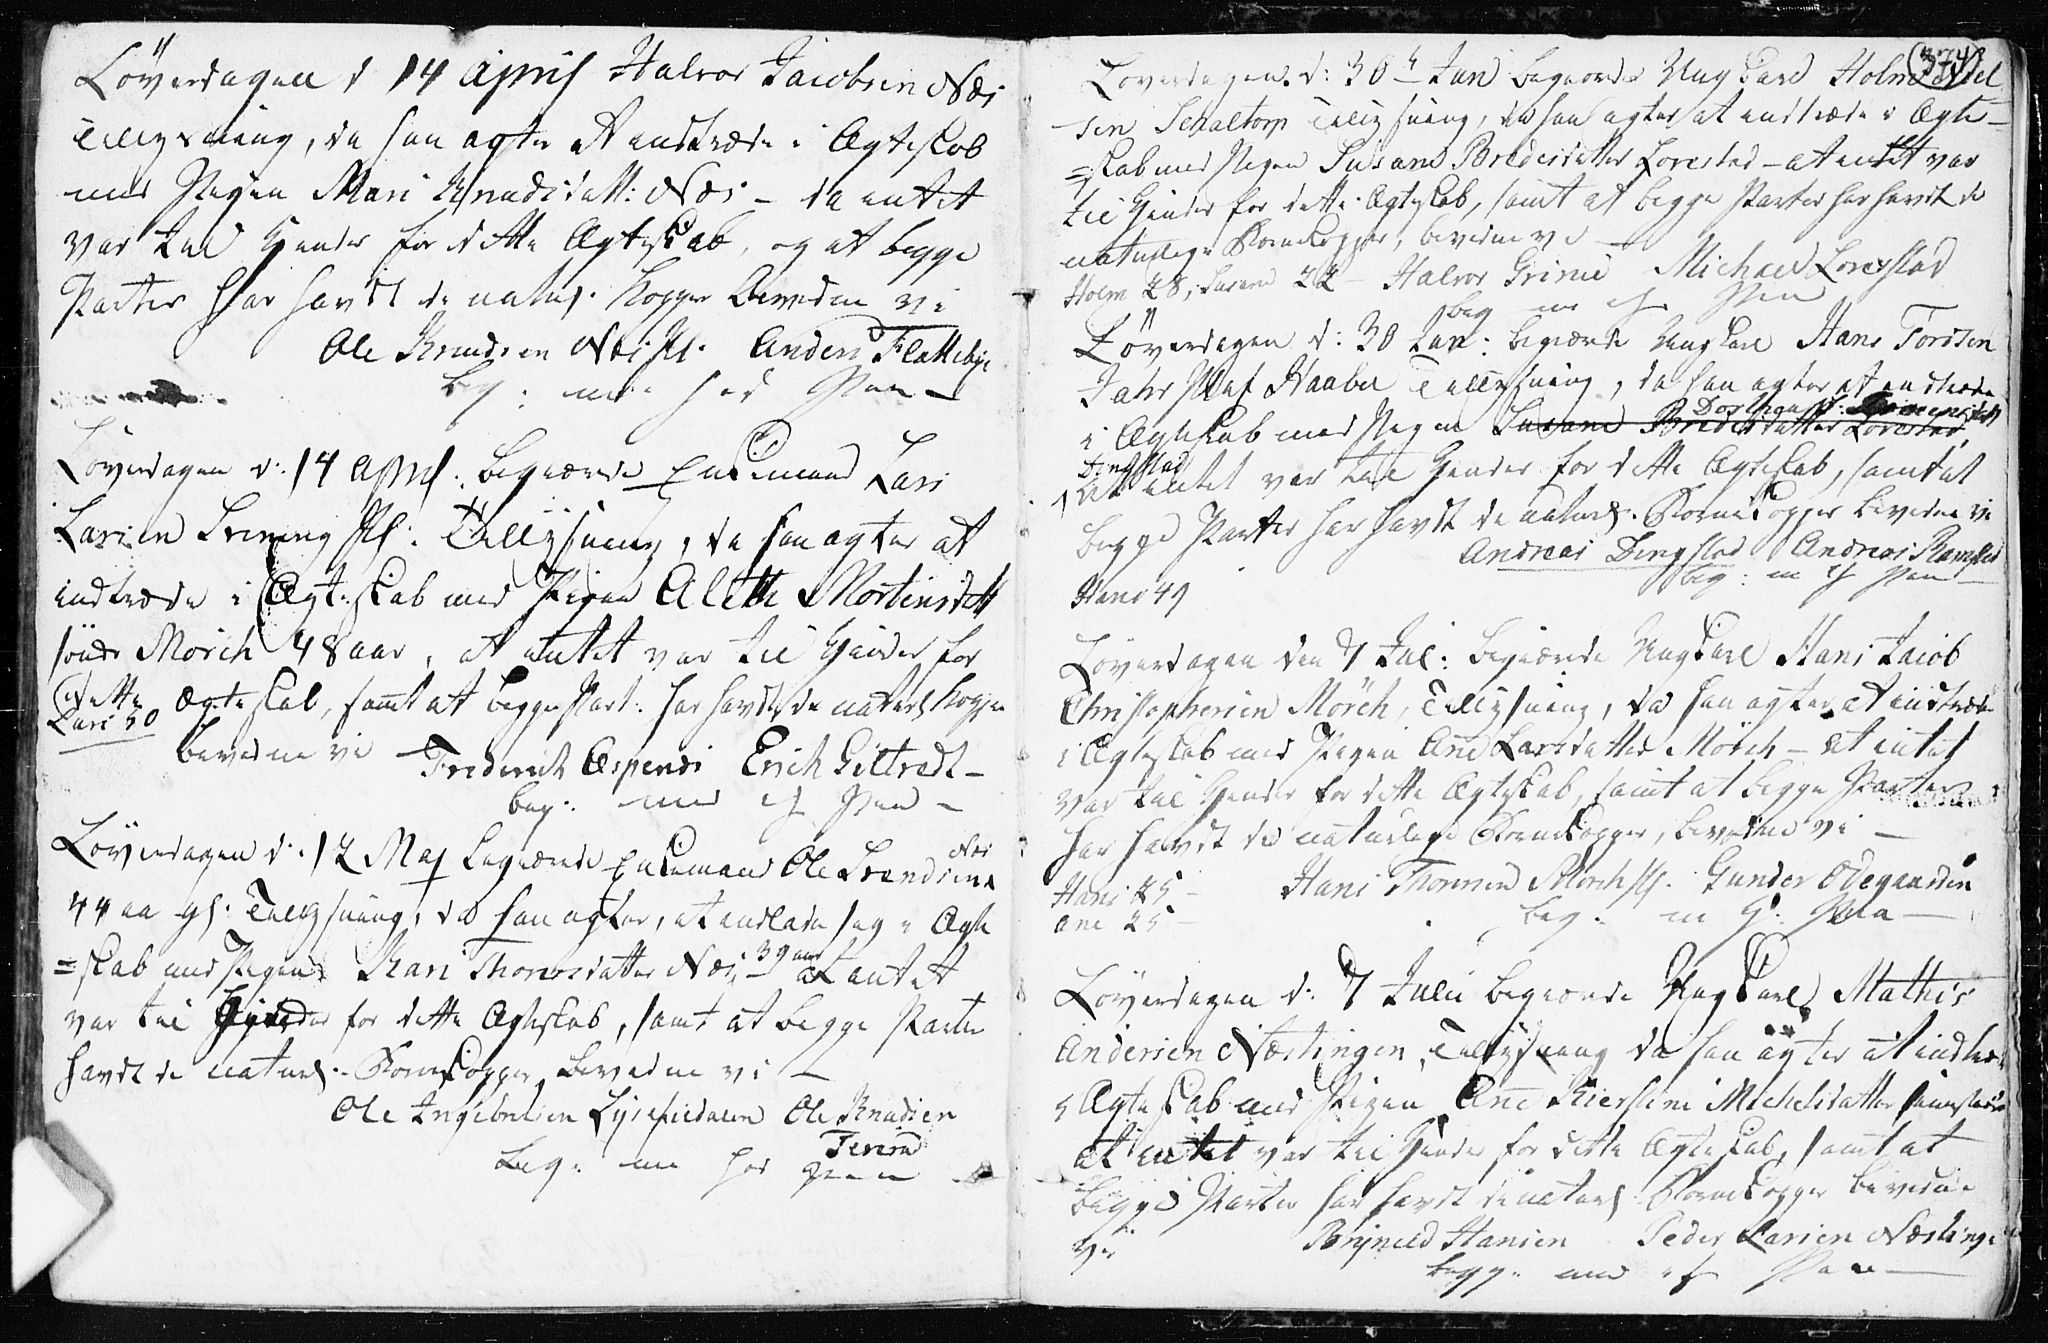 Löverdagen d 14 April Halvor Jacobsen Næs
Tillysning, da han agter at indtræde i Ægteskab
med Pigen Mari Knudsdatt: Næs – da intet
var til Hinder for dette Ægteskab, og at begge
Parter har havdt de naturl. Kopper bevidne vi
Ole Knudsen Næs Anders Flattebye
beg: med ført Pen –
Löverdagen d: 14 April: begiærede Enkemand Lars
Larsen Tillysning, da han agter at
indtræde i Ægteskab med Pigen Alethe Mortensdatt
söndr Morch 48 aar, at intet var til Hinder for
dette Ægteskab, samt at begge Part: har havdt de naturl Kopper
Lars 50
bevidne vi Frederich Aspenes Erich Gistredt –
beg: med Pen –
Löverdagen d: 12 Maj begiærede Enkemand Ole Svendsen
Næs
44 aa gl: Tillysning, da han agter, at indlade sig i Ægte
=skab med Pigen Kari Thoresdatter Næs 39 aar at intet
var til Hinder for dette Ægteskab, samt at begge Parter
havdt de naturl. Kornekopper bevidne vi –
Ole Ingebretsen Ole Knudsen
beg: med Pen
374
Löverdagen d: 30 Jun begiærede Ung Karl Holm
sen Schaltorp Tillysning, da han agter at indtræde i Ægte–
=skab med Pigen Susane Bredesdatter Lovestad – at intet var
til Hinder for dette Ægteskab, samt at begge Parter har havdt de
naturlige Kornekopper, bevidne vi –
Holm 28, Susane 22 – Halvor Grimi Michael Lovestad
beg Pen
Löverdagen d: 30 Jun: begiærede Ung Karl Hans Torsten
Haaber Tillysning, da han agter at indtræde
i Ægteskab med Pigen Susane Bredesdatter Lovestad
Dingstad
at intet var til Hinder for dette Ægteskab, samt at
begge Parter har havdt de naturl. Kornekopper bevidne vi
Andreas Dingstad Andreas
beg: Pen –
Hans 49
Löverdagen den 7 Jul: begiærede Ung Karl Hans Jacob
Christophersen Mörch, Tillysning, da han agter at indtræde
i Ægteskab med Pigen Ane Larsdatter Mörch – at intet
var til Hinder for dette Ægteskab, samt at begge Parter
har havdt de naturlige Kornekopper, bevidne vi –
Hans 25 – Hans Thoresen Morch Gunder Odegaarden
ane 25 – beg: Pen –
Löverdagen d: 7 Julii begiærede Ung Karl Mathis
Andersen Næstingen, Tillysning da han agter at indtræde
i Ægteskab med Pigen Ane Kierstine Michelsdatter
at intet var til Hinder for dette Ægteskab, samt at
begge Parter har havdt de naturl Kornekopper bevidne
vi Brynild Hansen Peder Larsen Næstinge
begge med Pen –